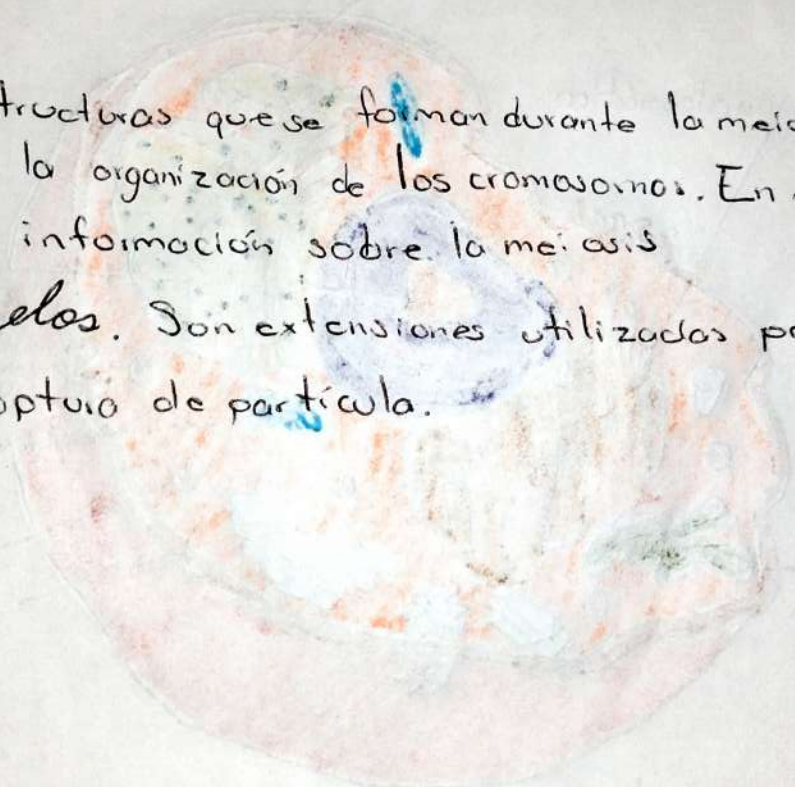 tructuras que se forman durante la meio
la organización de los cromosomas. En
información sobre la meiosis
elos. Son extensiones utilizadas pa
ptura de partícula.